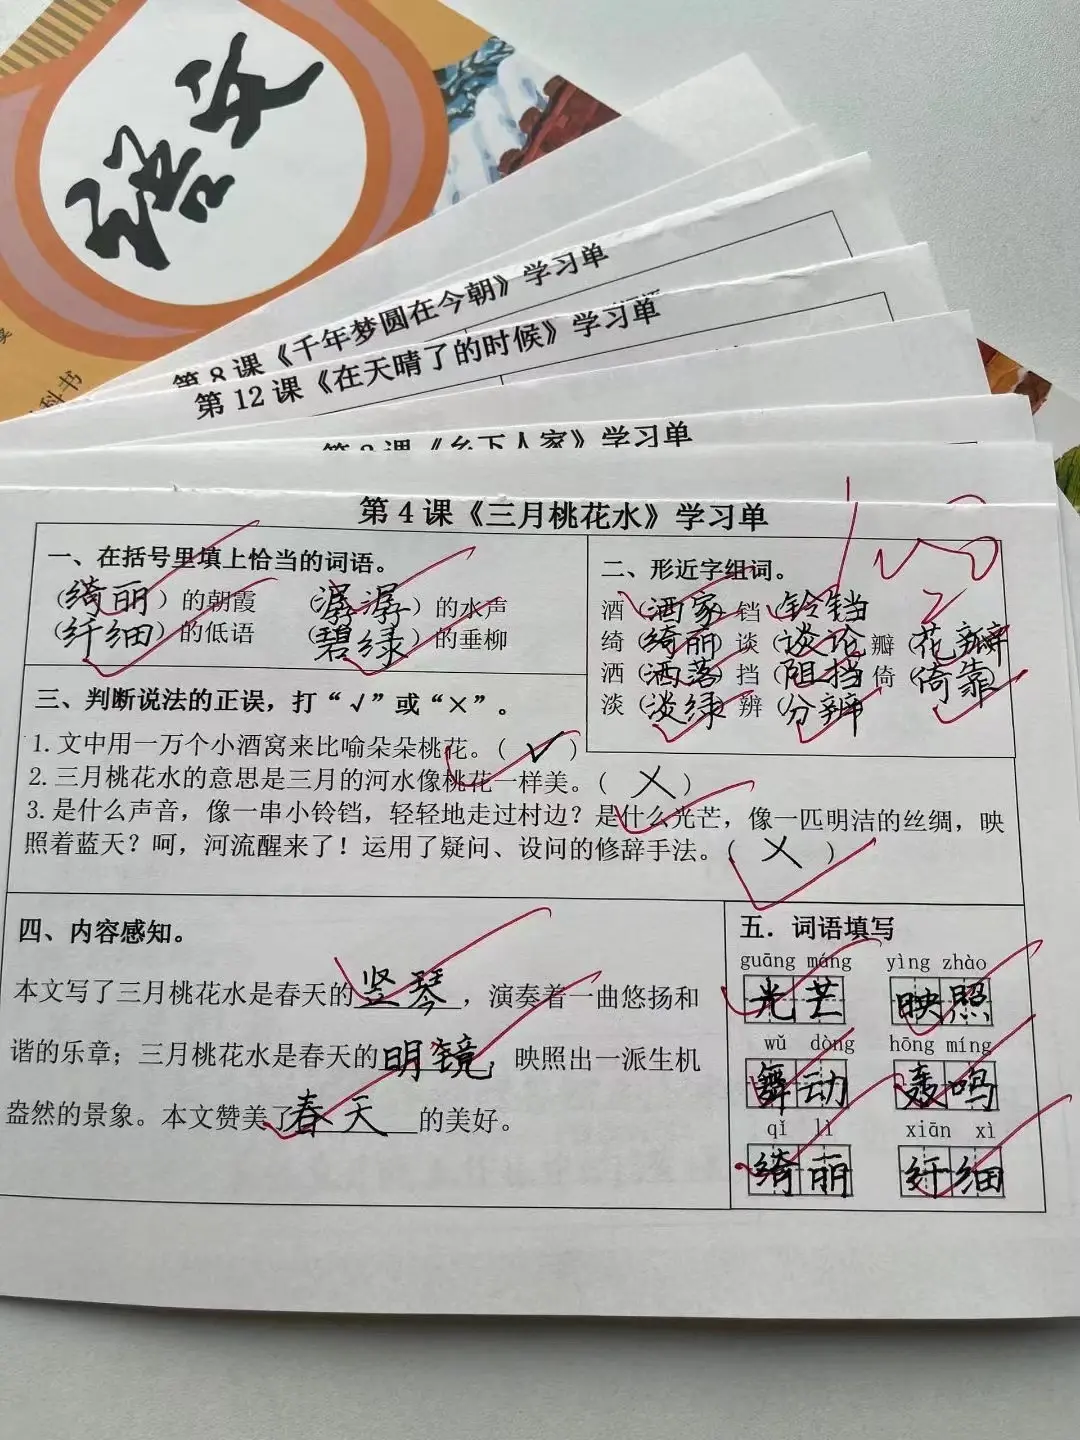 语文
科书
第8课《千年梦圆在今朝》学习单
第12课《在天晴了的时候》学习单
《乡下人家》学习单
第4课《三月桃花水》学习单
一、在括号里填上恰当的词语。
(绮丽)的朝霞 (潺潺)的水声
(纤细)的低语 (碧绿)的垂柳
二、形近字组词。
100
酒(酒家)铛(铃铛)
绮(绮丽)谈(谈论)瓣(花瓣)
洒(洒落)挡(阻挡)倚(倚靠)
淡(淡绿)辨(分辨)
三、判断说法的正误,打“√”或“×”。
1.文中用一万个小酒窝来比喻朵朵桃花。(√)
2.三月桃花水的意思是三月的河水像桃花一样美。(×)
3.是什么声音,像一串小铃铛,轻轻地走过村边?是什么光芒,像一匹明洁的丝绸,映
照着蓝天?呵,河流醒来了!运用了疑问、设问的修辞手法。(×)
四、内容感知。
本文写了三月桃花水是春天的竖琴,演奏着一曲悠扬和
谐的乐章;三月桃花水是春天的明镜,映照出一派生机
盎然的景象。本文赞美了春天的美好。
五.词语填写
guāng máng yìng zhào
光芒 映照
wǔ dòng hōng míng
舞动 轰鸣
qǐ lì xiān xì
绮丽 纤细